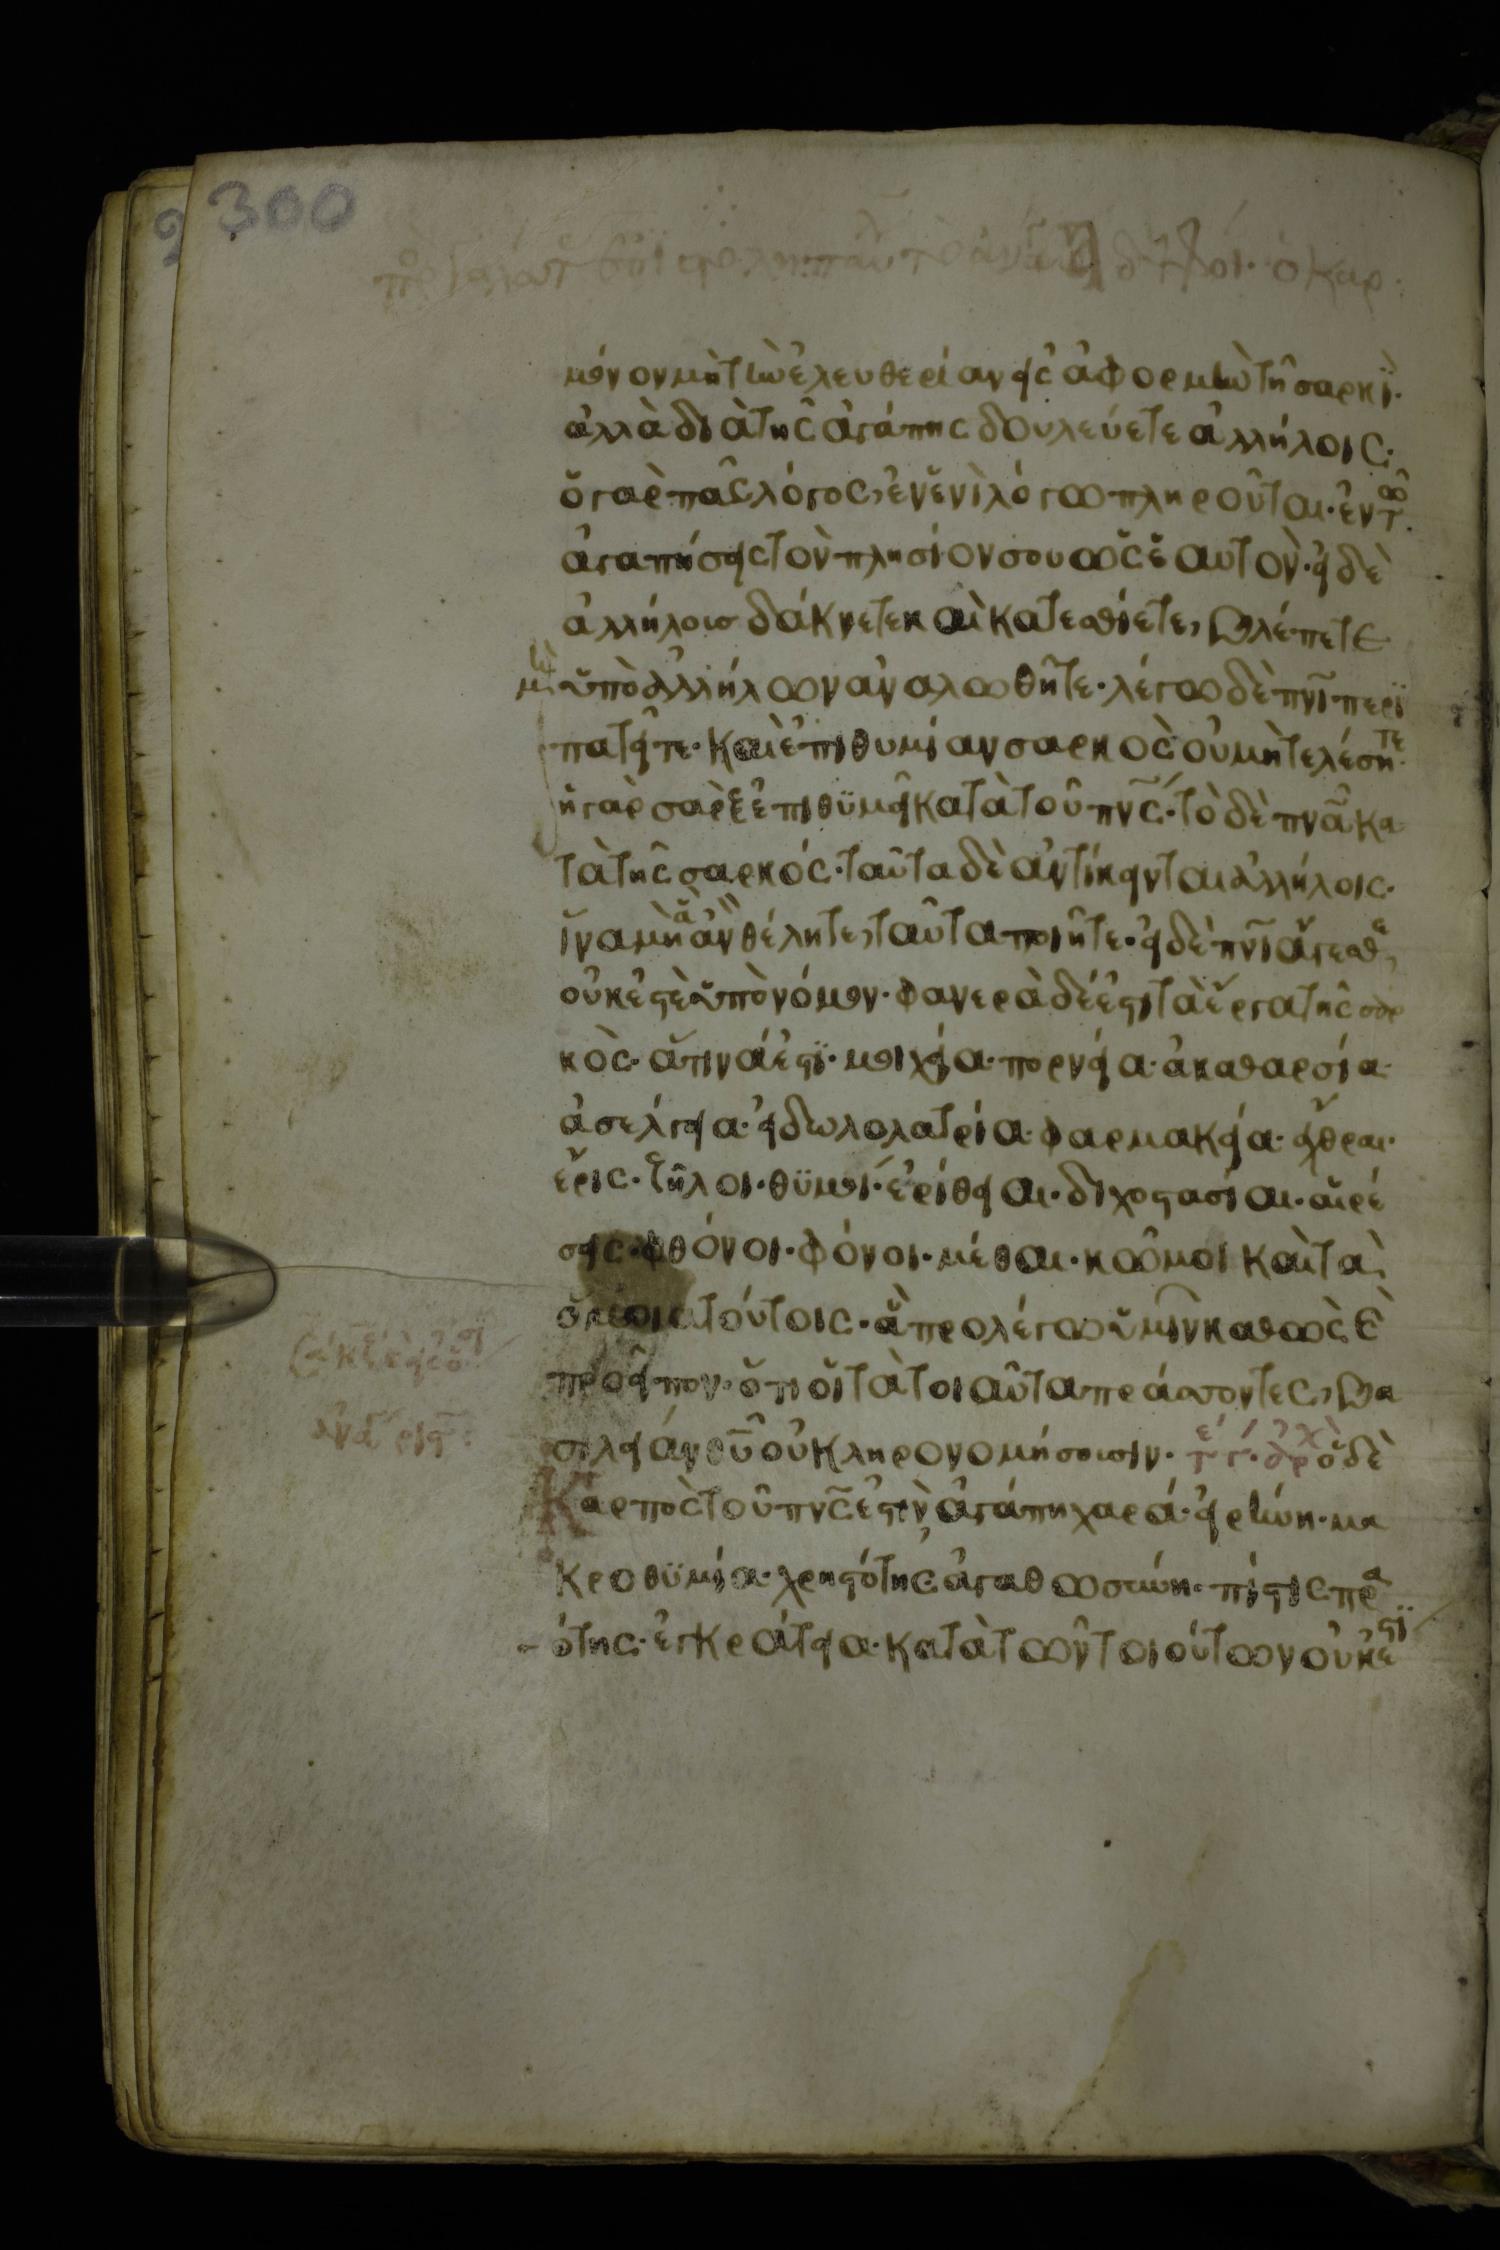 300
μόνον μὴ τὴν ἐλευθερίαν εἰς ἀφορμὴν τῆ σαρκὶ·
ἀλλὰ διὰ τῆς ἀγάπης δουλεύετε ἀλλήλοις·
ὁ γὰρ πᾶς λόγος, ἐν ἑνὶ λόγω πληροῦται· ἐν τῶ·
ἀγαπήσεις τὸν πλησίον σου ὡς ἑαυτὸν· εἰ δὲ
ἀλλήλοισ δάκνετε καὶ κατεσθίετε, βλέπετε
μὴ ὑπὸ ἀλλήλων ἀναλωθῆτε· λέγω δὲ πνι περι
πατεῖτε· καὶ ἐπιθυμίαν σαρκὸς οὐ μὴ τελέσητε·
ἡ γὰρ σὰρξ ἐπιθϋμεῖ κατὰ τοῦ πνς· τὸ δὲ πνα κα
τὰ τῆς σαρκός· ταῦτα δὲ ἀντίκειται ἀλλήλοις·
ἵνα μὴ ἃ ἂν θέλητε, ταῦτα ποιῆτε· εἰ δὲ πνι ἄγεσθε,
οὐκ ἐστὲ ὑπὸ νόμον· φανερὰ δέ ἐστι τὰ ἔργα τῆς σαρ
κὸς· ἅτινά ἐστϊ· μοιχεία· πορνεία· ἀκαθαρσία·
ἀσέλγεια· εἰδωλολατρία· φαρμακεία· ἔχθραι·
ἔρις· ζῆλοι· θϋμοί· ἐρίθειαι· διχοστασίαι· αἱρέ
σεις· φθόνοι· φόνοι· μέθαι· κῶμοι καὶ τὰ
ὅμοια τούτοις· ἃ προλέγω ὑμῖν καθὼς ἐ
προεῖπον· ὅτι οἱ τὰ τοιαῦτα πράσσοντες, βα
σιλείαν θυ οὐ κληρονομήσουσιν· ὁ δὲ
Καρπὸς τοῦ πνς ἐστὶν, ἀγάπη χαρά· εἰρήνη· μα
κροθϋμία· χρηστότης· ἀγαθωσύνη· πίστις· πρα
ότης· ἐγκράτεια· κατὰ τῶν τοιούτων οὐκ ἔστϊ